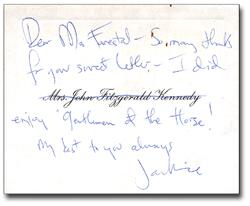 Dear Mr Forrestal – So many thanks
for your sweet letter – I did
Mrs. John Fitzgerald Kennedy
enjoy "Gentlemen of the Horse!
My best to you always
Jackie